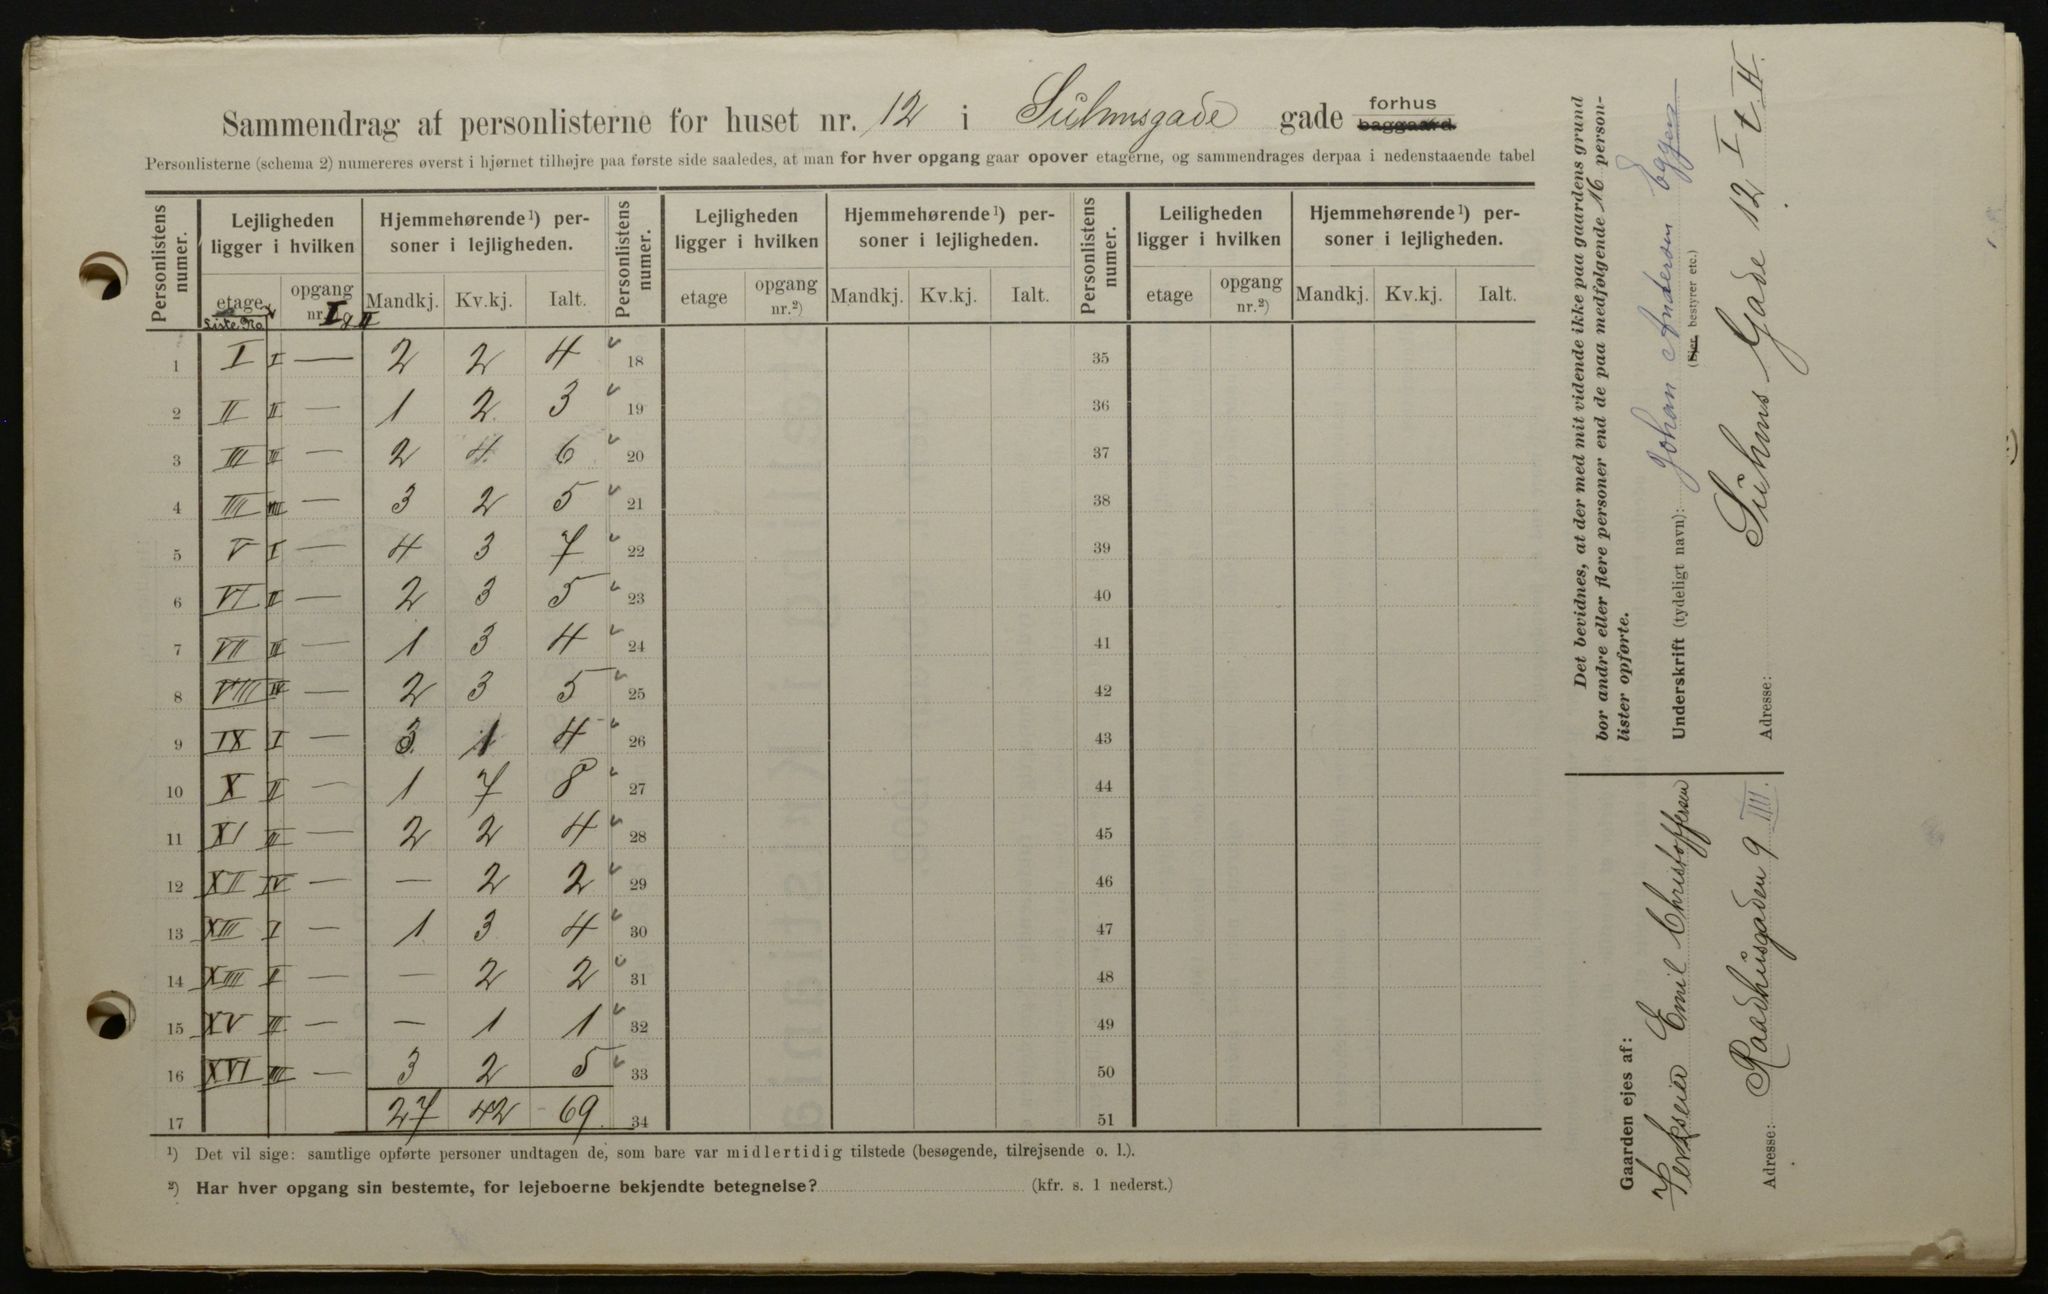 Sammendrag af personlisterne for huset nr. 12 i Suhmsgade gade forhus baggaard.
Personlisterne (schema 2) numereres øverst i hjørnet tilhøjre paa første side saaledes, at man for hver opgang gaar opover etagerne, og sammendrages derpaa i nedenstaaende tabel
Personlistens numer. Lejligheden ligger i hvilken Hjemmehørende¹) personer i lejligheden. Personlistens numer. Lejligheden ligger i hvilken Hjemmehørende¹) personer i lejligheden. Personlistens numer. Leiligheden ligger i hvilken Hjemmehørende¹) personer i lejligheden.
etage opgang nr. Mandkj. Kv.kj. Ialt. etage opgang nr.²) Mandkj. Kv.kj. Ialt. etage opgang nr.²) Mandkj. Kv.kj. Ialt.
Liste No I & II
1 I I — 2 2 4 18 35
2 II II — 1 2 3 19 36
3 III III — 2 4 6 20 37
4 IIII IIII — 3 2 5 21 38
5 V I — 4 3 7 22 39
6 VI II — 2 3 5 23 40
7 VII III — 1 3 4 24 41
8 VIII IV — 2 3 5 25 42
9 IX I — 3 1 4 26 43
10 X II — 1 7 8 27 44
11 XI III — 2 2 4 28 45
12 XII IV — — 2 2 29 46
13 XIII I — 1 3 4 30 47
14 XIIII II — — 2 2 31 48
15 XV III — — 1 1 32 49
16 XVI IIII — 3 2 5 33 50
17 27 42 69 34 51
¹) Det vil sige: samtlige opførte personer undtagen de, som bare var midlertidig tilstede (besøgende, tilrejsende o. l.).
²) Har hver opgang sin bestemte, for lejeboerne bekjendte betegnelse? (kfr. s. 1 nederst.)
Det bevidnes, at der med mit vidende ikke paa gaardens grund
bor andre eller flere personer end de paa medfølgende 16 person-
lister opførte.
Underskrift (tydeligt navn): Johan Andersen Eggen
(Ejer, bestyrer etc.)
Adresse: Suhms Gade 12 I t H.
Gaarden ejes af:
Emil Christoffersen
Adresse: Raadhusgaden 9 IIII.